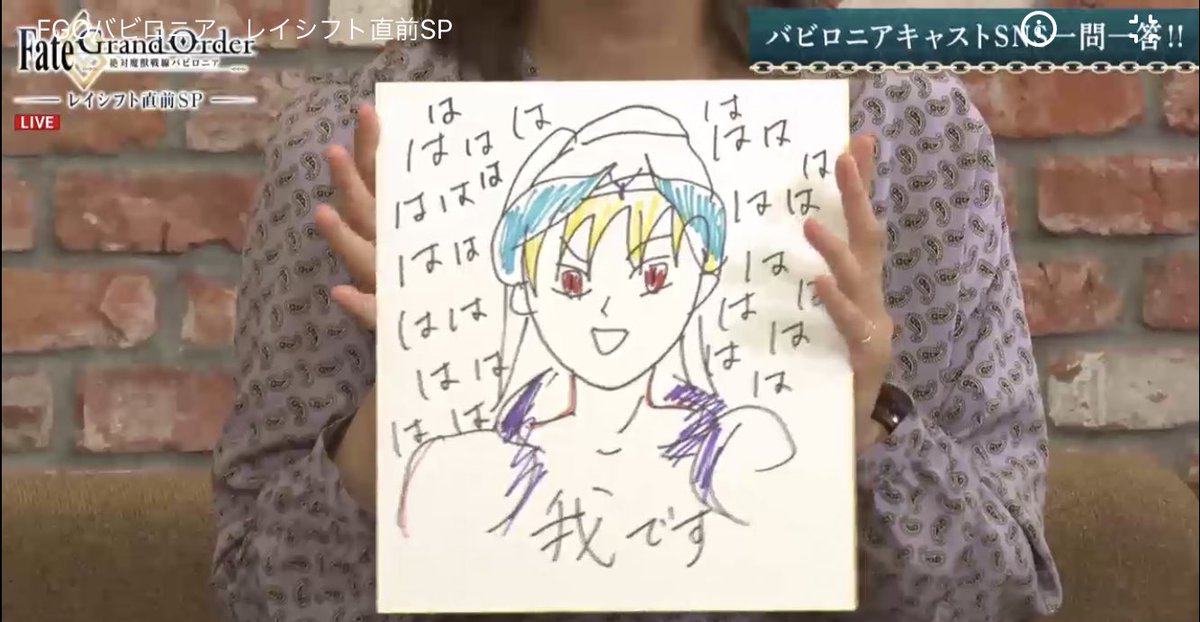 FGOバビロニア レイシフト直前SP
Fate Grand Order
絶対魔獣戦線バビロニア
レイシフト直前SP
LIVE
バビロニアキャストSNS一問一答!!
は
は は は
は は は
は は
は は
は は
は は
は
は は
は
は は
は
は は
は
は
は
我です